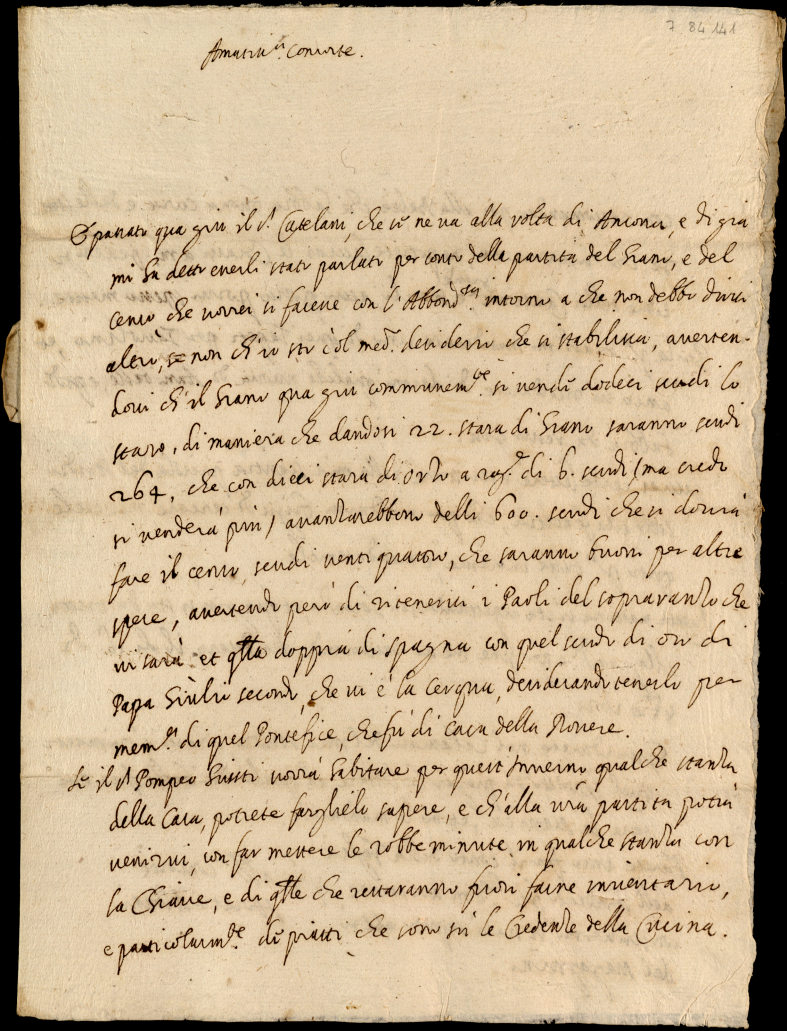 7 84 141
Amatiss.ma Consorte.
È passato qua giù il s.r Catelani, che se ne va alla volta di Ancona, e di già
mi ha detto haverli stato parlato per conto della partita del Grano, e del
censo che vorrei si facesse con l'Abbond.za intorno a che non debbo dirvi
altro, se non ch'io sto col med.o desiderio che si stabilisca, averten-
dovi ch'il Grano qua giù communem.te si vende dodeci scudi lo
staro, di maniera che dandosi 22. stara di Grano saranno scudi
264, che con dieci stara di orzo a rag.e di 6. scudi (ma credo
si venderà più) avanzarebbono delli 600. scudi che si dovrà
fare il censo, scudi ventiquatro, che saranno buoni per altre
spese, avertendo però di ritenervi i Paoli del sopravanzo che
vi sarà et q.lla doppia di spagna con quel scudo di oro di
Papa Giulio secondo, che vi è la Cerqua, desiderando tenerlo per
mem.a di quel Pontefice, che fù di Casa della Rovere.
Se il s.r Pompeo Giusti vorrà habitare per quest'Inverno qualche stanza
della Casa, potrete farglielo sapere, e ch'alla vra partita potrà
venirvi, con far mettere le robbe minute in qualche stanza con
la Chiave, e di q.lle che restaranno fuori farne inventario,
e particolarm.te de piatti che sono sù le Credenze della Cucina.